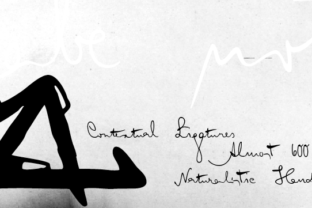 Contextual Ligatures
Almost 600
Naturalistic Hand